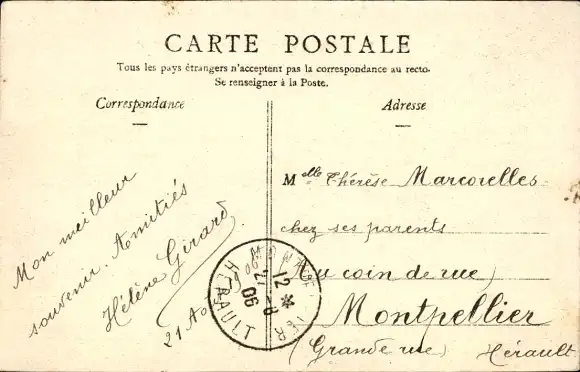 CARTE POSTALE
Tous les pays étrangers n'acceptent pas la correspondance au recto.
Se renseigner à la Poste.
Correspondance
Adresse
Mon meilleur
souvenir. Amitiés
Hélène Girard
21 Août
Melle Thérèse Marcorelles
chez ses parents
Au coin de rue,
Montpellier
(Grande rue) Hérault
12
21 -8
06
HERAULT